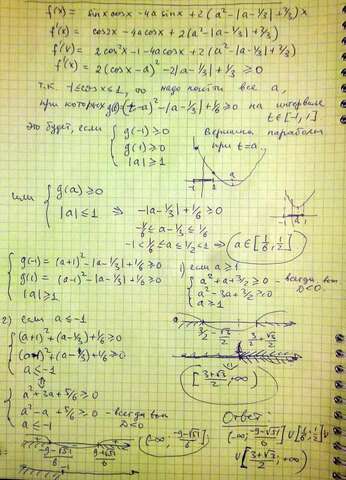 f(x) = sinx cosx - 4a sinx + 2(a² - |a - 1/3| + 2/3)x
f'(x) = cos2x - 4a cosx + 2(a² - |a - 1/3| + 2/3)
f'(x) = 2cos²x - 1 - 4a cosx + 2(a² - |a - 1/3| + 2/3)
f'(x) = 2(cosx - a)² - 2|a - 1/3| + 1/3 ≥ 0
т.к. -1 ≤ cosx ≤ 1, то надо найти все a,
при которых g(t) = (t - a)² - |a - 1/3| + 1/6 ≥ 0 на интервале
t ∈ [-1, 1]
это будет, если { g(-1) ≥ 0
g(1) ≥ 0
|a| ≥ 1
Вершина параболы
при t = a
-1 1 a
или { g(a) ≥ 0
|a| ≤ 1 ⇒ -|a - 1/3| + 1/6 ≥ 0
-1/6 ≤ a - 1/3 ≤ 1/6
-1 < 1/6 ≤ a ≤ 1/2 < 1 ⇒ a ∈ [1/6, 1/2]
{ g(-1) = (a+1)² - |a - 1/3| + 1/6 ≥ 0
g(1) = (a-1)² - |a - 1/3| + 1/6 ≥ 0
|a| ≥ 1
1) если a ≥ 1
{ a² + a + 3/2 ≥ 0 - всегда вып
D < 0
a² - 3a + 3/2 ≥ 0
a ≥ 1
3/2 - √3/2 3/2 + √3/2
[3+√3/2, +∞)
2) если a ≤ -1
{ (a+1)² + (a - 1/3) + 1/6 ≥ 0
(a-1)² + (a - 1/3) + 1/6 ≥ 0
a ≤ -1
{ a² + 3a + 5/6 ≥ 0
a² - a + 5/6 ≥ 0 - всегда вып
D < 0
a ≤ -1
-9-√51/6 -9+√51/6
-1
(-∞, -9-√51/6]
Ответ:
(-∞; -9-√51/6] ∪ [1/6; 1/2] ∪
∪ [3+√3/2, +∞)